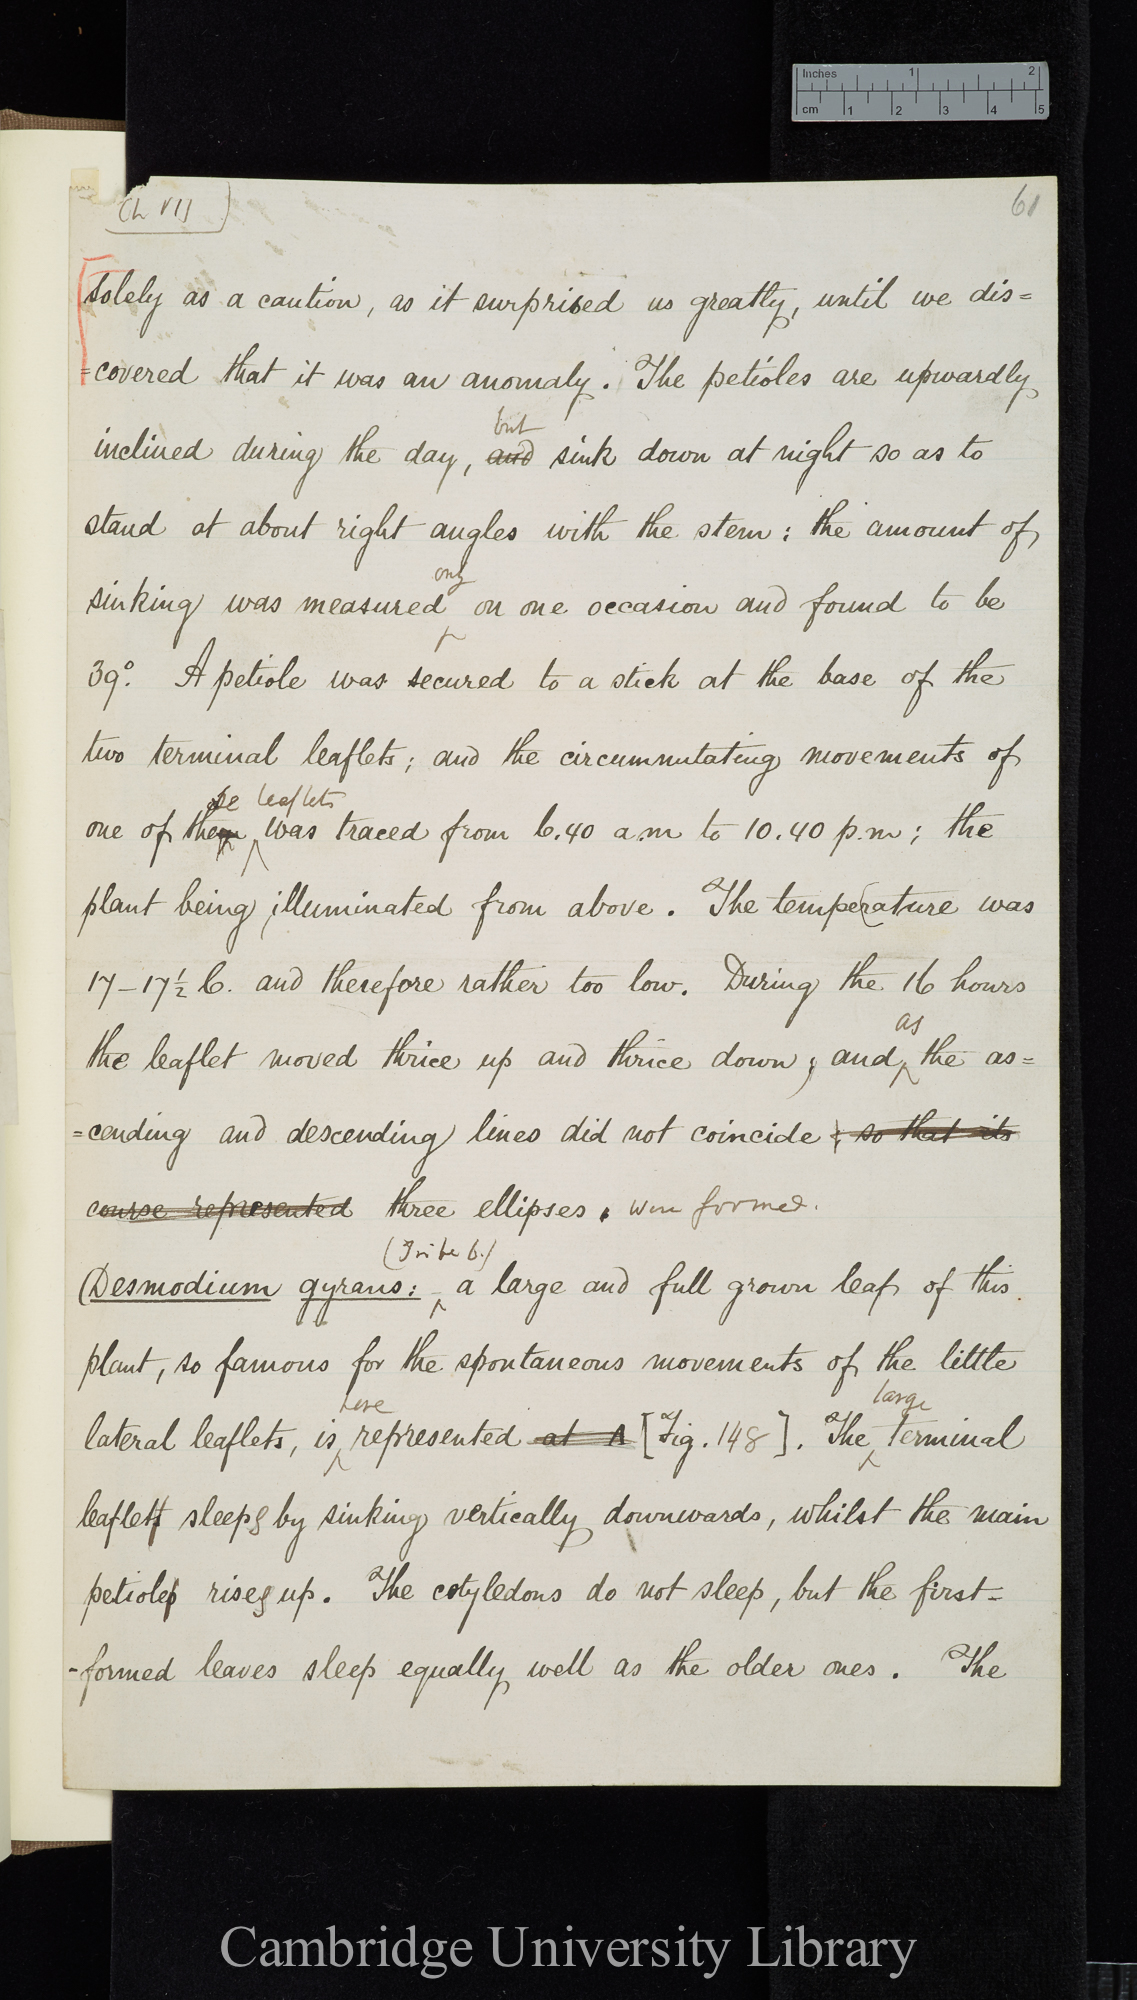 Inches 1 2
cm 1 2 3 4 5
(Ch VII)
61
solely as a caution, as it surprised us greatly, until we dis=
=covered that it was an anomaly. The petioles are upwardly
but
inclined during the day, and sink down at night so as to
stand at about right angles with the stem: the amount of
only
sinking was measured on one occasion and found to be
39°. A petiole was secured to a stick at the base of the
two terminal leaflets; and the circumnutating movements of
se leaflets
one of them was traced from 6.40 a.m to 10.40 p.m; the
plant being illuminated from above. The temperature was
17–17½ C. and therefore rather too low. During the 16 hours
as
the leaflet moved thrice up and thrice down; and the as=
=cending and descending lines did not coincide; so that its
course represented three ellipses. were formed.
(Tribe 6.)
(Desmodium gyrans: – a large and full grown leaf of this
plant, so famous for the spontaneous movements of the little
here large
lateral leaflets, is represented at A [Fig. 148]. The terminal
leaflets sleeps by sinking vertically downwards, whilst the main
petioles rises up. The cotyledons do not sleep, but the first=
-formed leaves sleep equally well as the older ones. The
Cambridge University Library